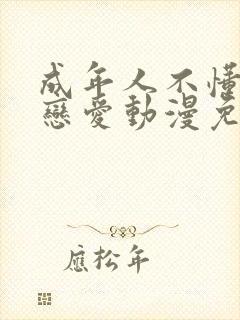 成年人不懂
戀愛動漫免
應松年